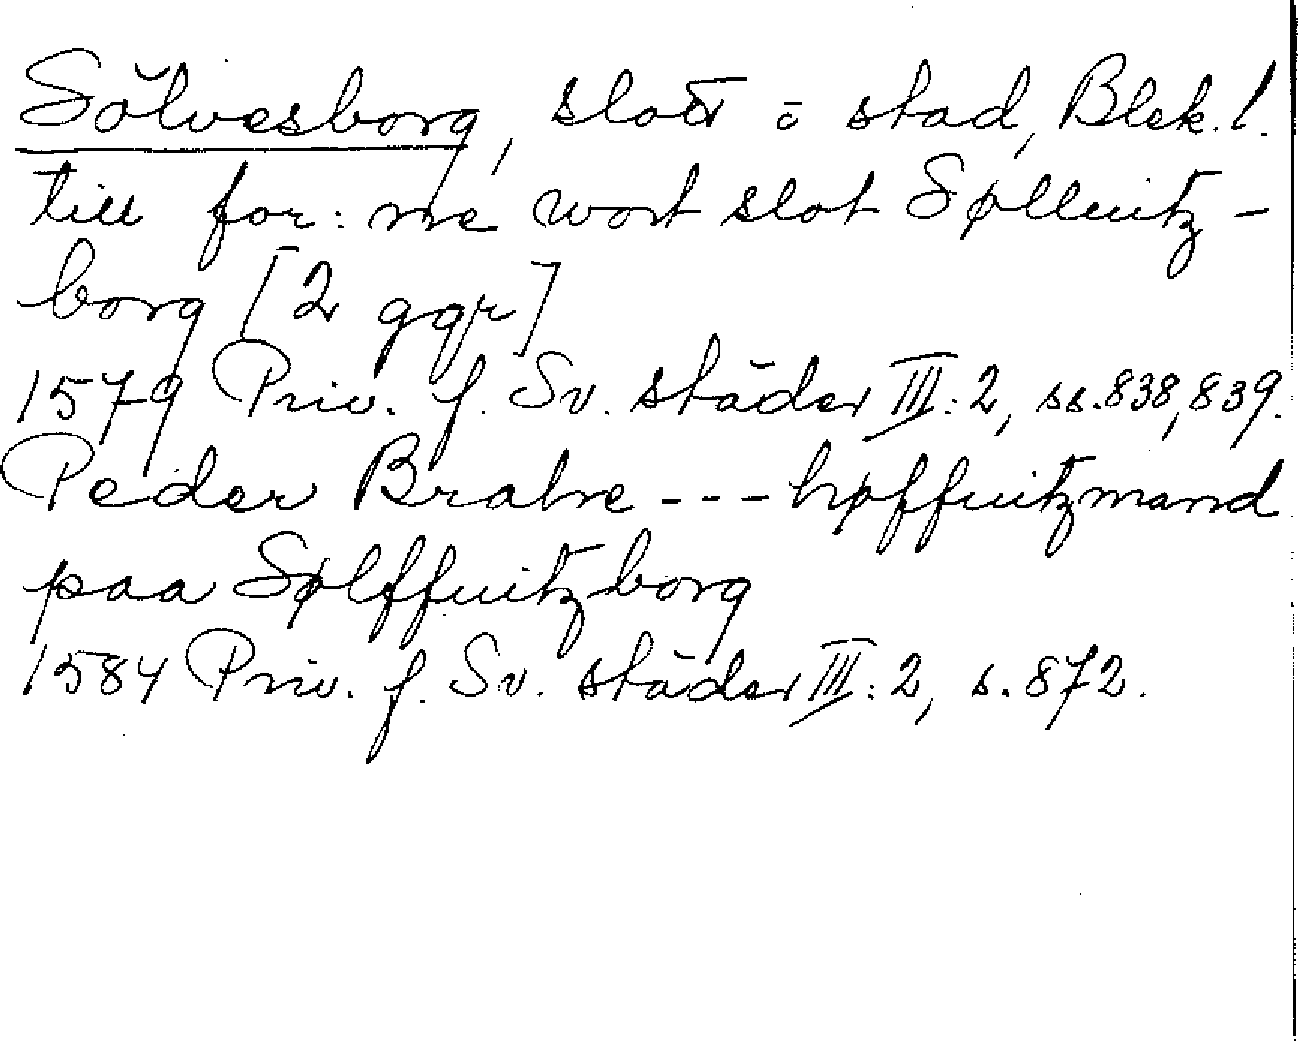 Sölvesborg, slott o stad, Blek. l.
till for: ne wort slot Sølluitz-
borg [2 ggr]
1579 Priv. f. Sv. städer III:2, ss. 838, 839.
Peder Brahe --- høffuitzmand
paa Sølffuitzborg
1584 Priv. f. Sv. städer III:2, s. 872.